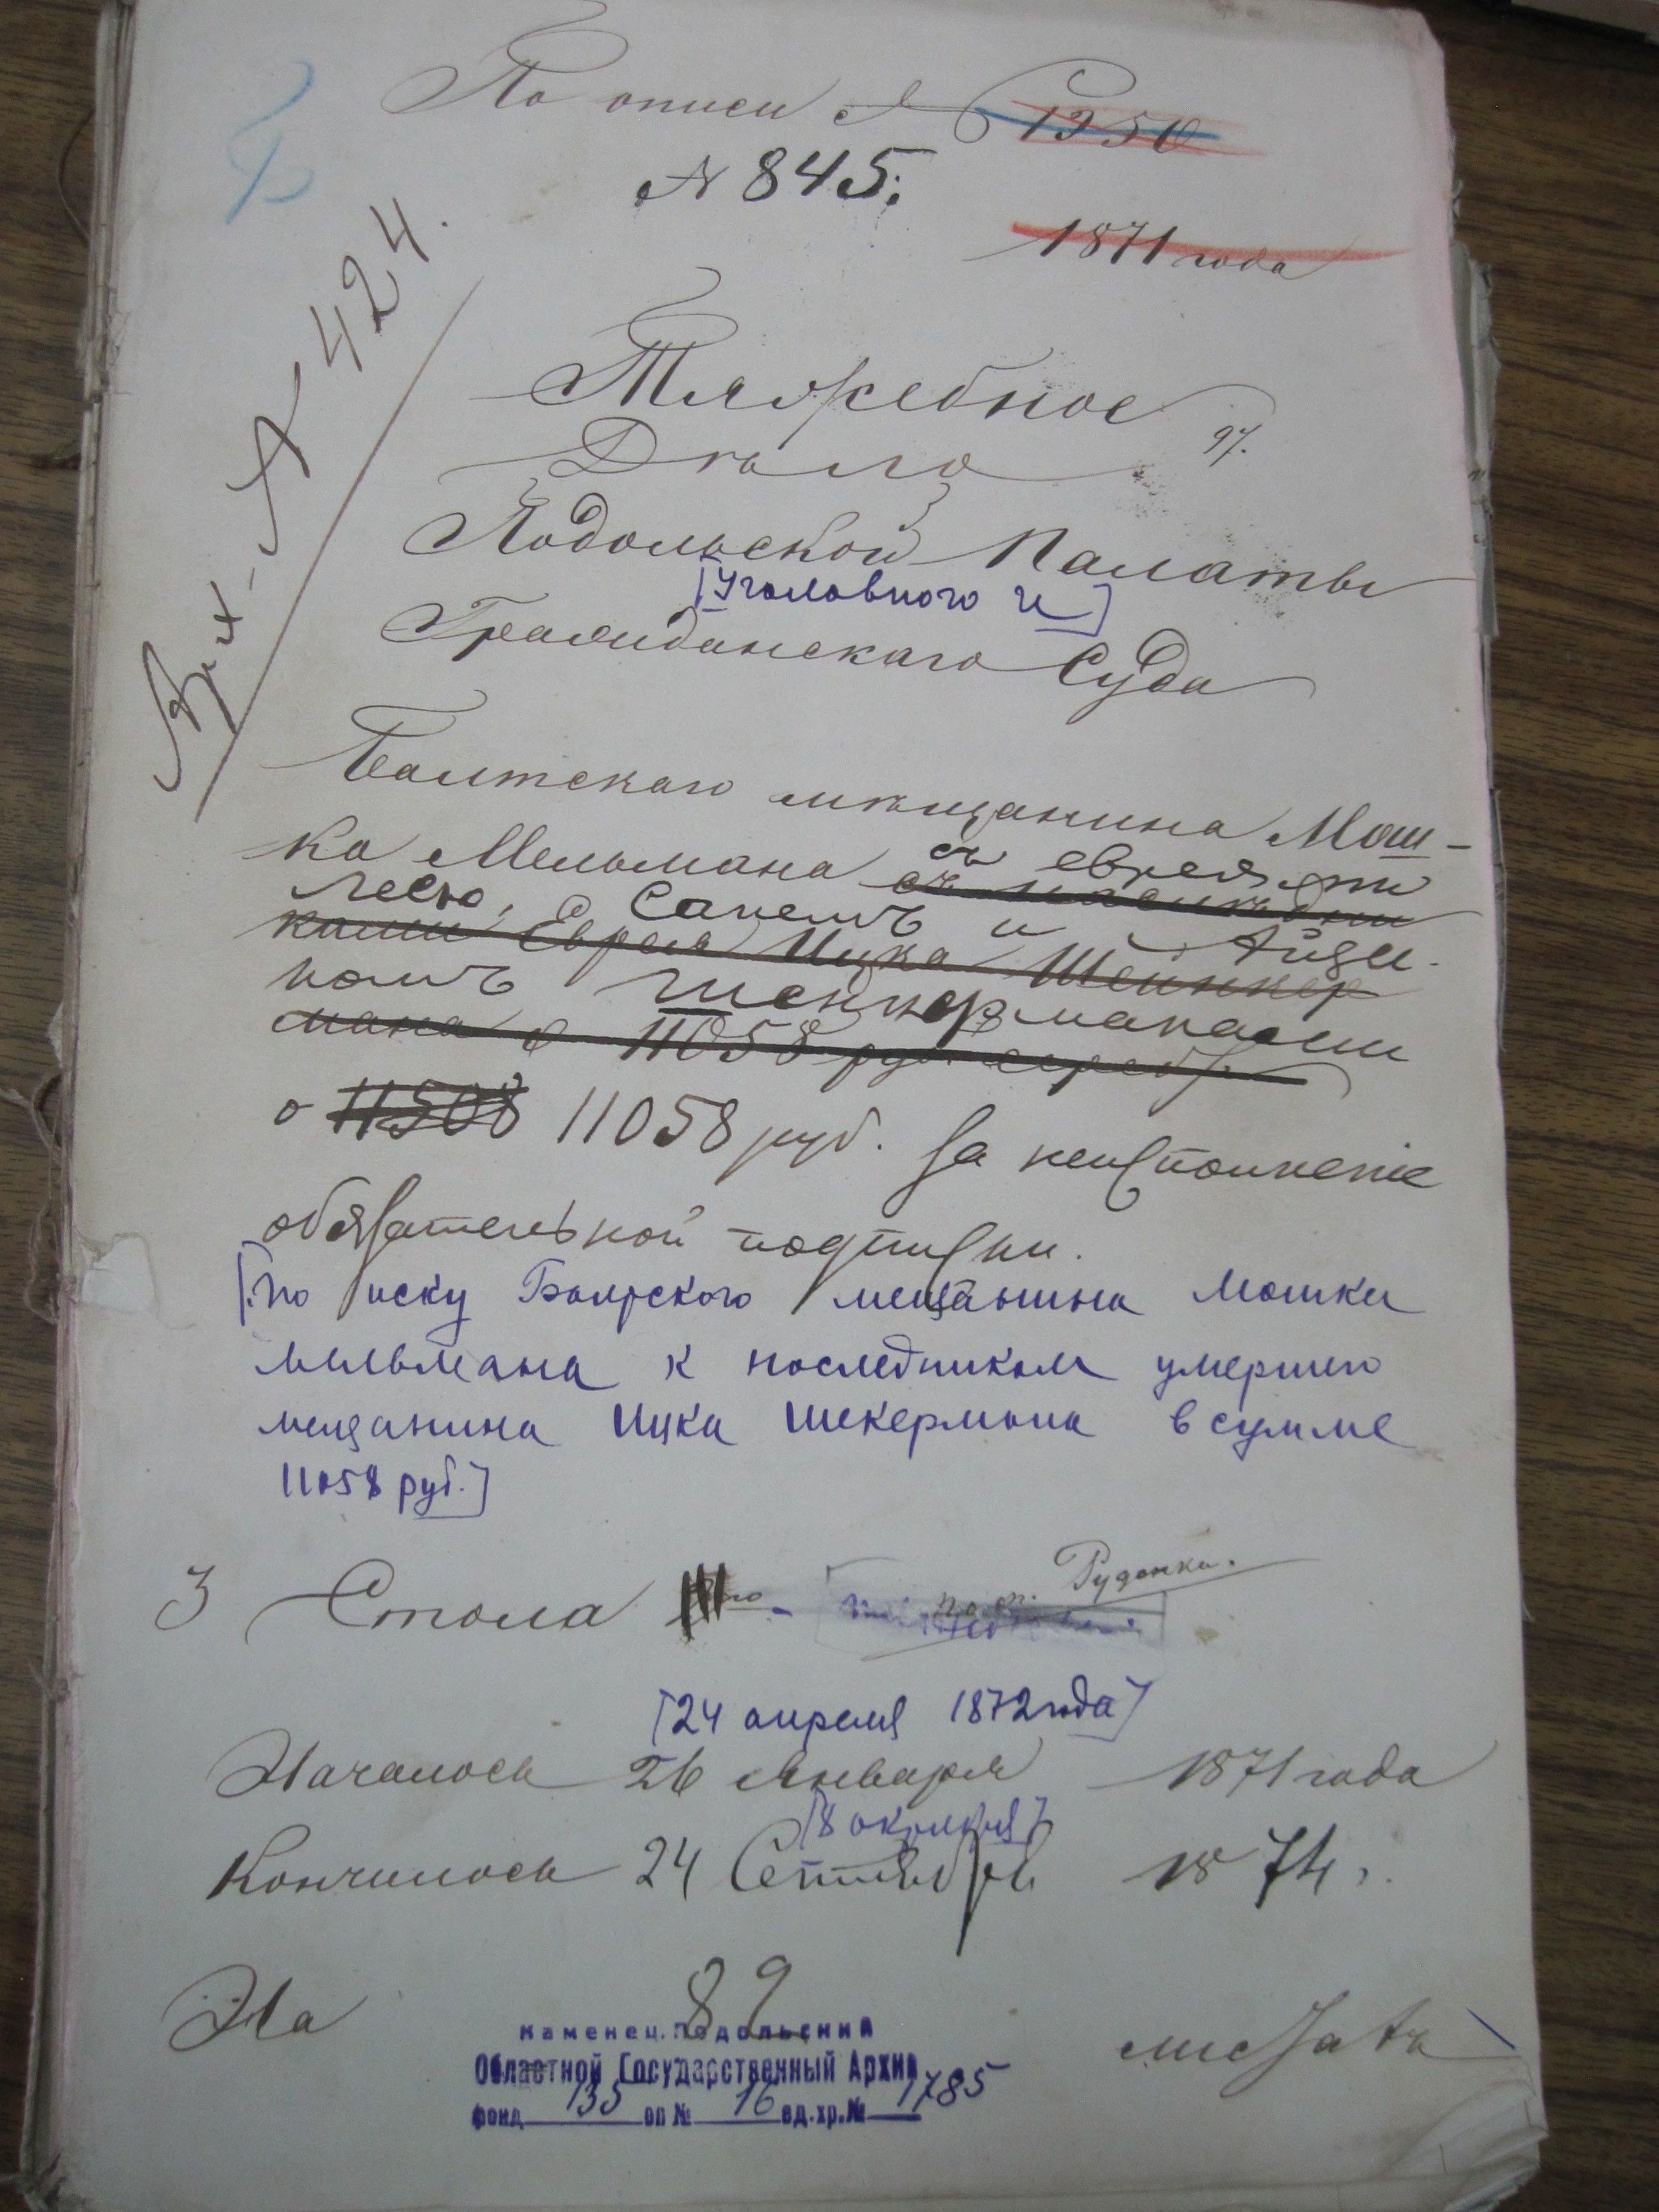 По описи № 1350
№ 845.
1871 года
Вых. № 424.
Тяжебное
97.
Дѣло
Подольской Палаты
[Уголовного и]
Гражданскаго Суда
Балтскаго мѣщанина Мош-
ка Мельмана съ евреями
съ наслѣдни
Лесею, Сапемъ и Айзи-
ками Еврея Ицка Шейнкер
комъ Шенкерманами
мана о 11058 руб. серебр.
о 11508 11058 руб. за неисполненіе
обязательной подписки.
[по иску мещанина Мошки
Мельмана к наследникам умершего
мещанина Ицка Шекермана в сумме
11058 руб.]
3 Стола
по оп. Руденка.
[24 апреля 1872 года]
Началось 26 Января 1871 года
[8 октября]
Кончилось 24 Сентября 1874.
На 89 листахъ
Каменец.Подольский
Областной Государственный Архив
фонд 135 оп № 16 ед.хр.№ 1785